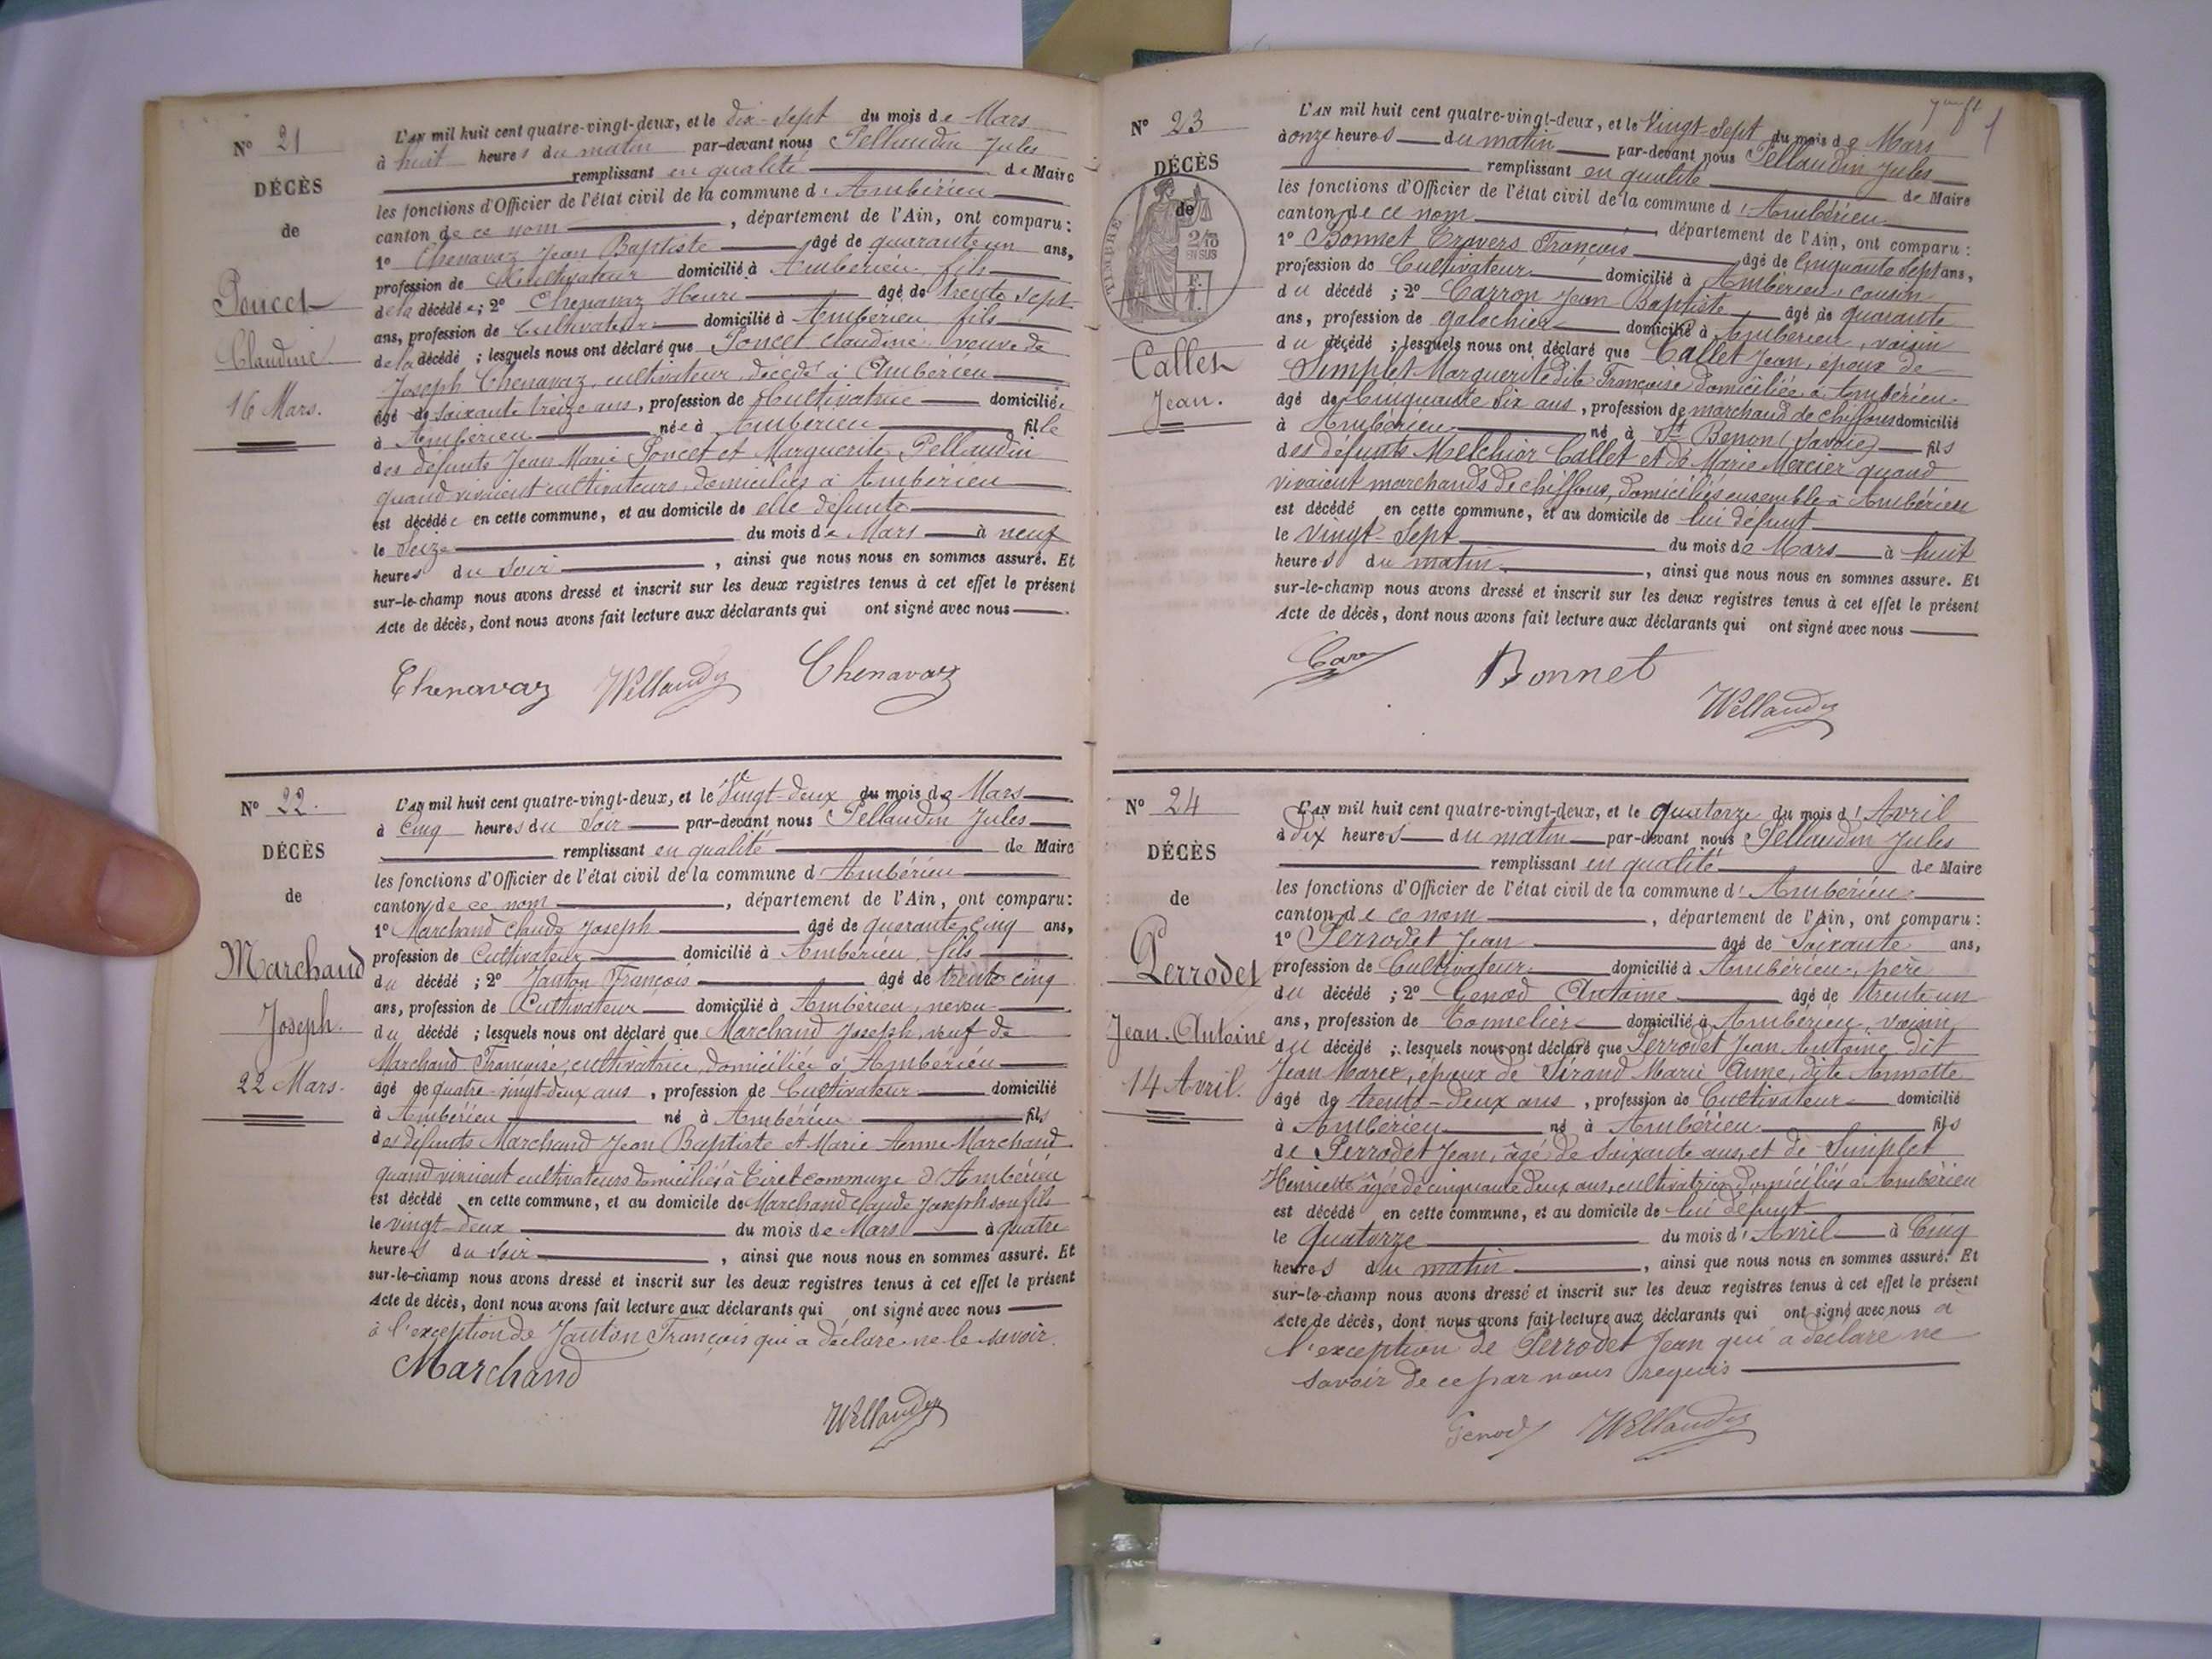 N° 21
DÉCÈS
de
Poncet
Claudine
16 Mars.
L'AN mil huit cent quatre-vingt-deux, et le dix-sept du mois de Mars
à huit heures du matin par-devant nous Pellaudin Jules
remplissant en qualité de Maire
les fonctions d'Officier de l'état civil de la commune d'Ambérieu
canton de ce nom, département de l'Ain, ont comparu :
1° Chenavaz Jean Baptiste âgé de quarante un ans,
profession de Cultivateur domicilié à Ambérieu fils
de la décédée ; 2° Chenavaz Henri âgé de trente sept
ans, profession de Cultivateur domicilié à Ambérieu fils
de la décédé ; lesquels nous ont déclaré que Poncet Claudine veuve de
Joseph Chenavaz, cultivateur, décédé à Ambérieu
âgé de soixante treize ans, profession de Cultivatrice domiciliée
à Ambérieu née à Ambérieu fille
des défunts Jean Marie Poncet et Marguerite Pellaudin
quand vivaient cultivateurs, domiciliés à Ambérieu
est décédée en cette commune, et au domicile de elle défunte
le Seize du mois de Mars à neuf
heures du soir, ainsi que nous nous en sommes assuré. Et
sur-le-champ nous avons dressé et inscrit sur les deux registres tenus à cet effet le présent
Acte de décès, dont nous avons fait lecture aux déclarants qui ont signé avec nous
Chenavaz Chenavaz
N° 22.
DÉCÈS
de
Marchand
Joseph.
22 Mars.
L'AN mil huit cent quatre-vingt-deux, et le Vingt-deux du mois de Mars
à Cinq heures du Soir par-devant nous Pellaudin Jules
remplissant en qualité de Maire
les fonctions d'Officier de l'état civil de la commune d'Ambérieu
canton de ce nom, département de l'Ain, ont comparu :
1° Marchand Claude Joseph âgé de quarante cinq ans,
profession de Cultivateur domicilié à Ambérieu, fils
du décédé ; 2° Janton François âgé de trente cinq
ans, profession de Cultivateur domicilié à Ambérieu, neveu
du décédé ; lesquels nous ont déclaré que Marchand Joseph, veuf de
Marchand Françoise, cultivatrice, domiciliée à Ambérieu
âgé de quatre-vingt-deux ans, profession de Cultivateur domicilié
à Ambérieu né à Ambérieu fils
des défunts Marchand Jean Baptiste et Marie Anne Marchand
quand vivaient cultivateurs domiciliés à Tiret commune d'Ambérieu
est décédé en cette commune, et au domicile de Marchand Claude Joseph son fils
le vingt-deux du mois de Mars à quatre
heures du Soir, ainsi que nous nous en sommes assuré. Et
sur-le-champ nous avons dressé et inscrit sur les deux registres tenus à cet effet le présent
Acte de décès, dont nous avons fait lecture aux déclarants qui ont signé avec nous
à l'exception de Janton François qui a déclaré ne le savoir.
Marchand
N° 23
DÉCÈS
de
TIMBRE
2/10
EN SUS
Callet
Jean.
L'AN mil huit cent quatre-vingt-deux, et le Vingt-Sept du mois de Mars
à onze heures du matin par-devant nous Pellaudin Jules
remplissant en qualité de Maire
les fonctions d'Officier de l'état civil de la commune d'Ambérieu
canton de ce nom, département de l'Ain, ont comparu :
1° Bonnet Travers François âgé de Cinquante Sept ans,
profession de Cultivateur domicilié à Ambérieu, cousin
du décédé ; 2° Carron Jean Baptiste âgé de quarante
ans, profession de galochier domicilié à Ambérieu, voisin
du décédé ; lesquels nous ont déclaré que Callet Jean, époux de
Simplet Marguerite dite Françoise domiciliée à Ambérieu
âgé de Cinquante Six ans, profession de marchand de chiffons domicilié
à Ambérieu né à St Benon (Savoie) fils
des défunts Melchior Callet et de Marie Mercier quand
vivaient marchands de chiffons, domiciliés ensemble à Ambérieu
est décédé en cette commune, et au domicile de lui défunt
le Vingt-Sept du mois de Mars à huit
heures du matin, ainsi que nous nous en sommes assuré. Et
sur-le-champ nous avons dressé et inscrit sur les deux registres tenus à cet effet le présent
Acte de décès, dont nous avons fait lecture aux déclarants qui ont signé avec nous
Bonnet
N° 24
DÉCÈS
de
Perrodet
Jean-Antoine
14 Avril.
L'AN mil huit cent quatre-vingt-deux, et le quatorze du mois d'Avril
à dix heures du matin par-devant nous Pellaudin Jules
remplissant en qualité de Maire
les fonctions d'Officier de l'état civil de la commune d'Ambérieu
canton de ce nom, département de l'Ain, ont comparu :
1° Perrodet Jean âgé de Soixante ans,
profession de Cultivateur domicilié à Ambérieu, père
du décédé ; 2° Genod Antoine âgé de trente un
ans, profession de Tonnelier domicilié à Ambérieu, voisin
du décédé ; lesquels nous ont déclaré que Perrodet Jean Antoine dit
Jean Marie, époux de Sirand Marie Anne, dite Annette
âgé de trente-deux ans, profession de Cultivateur domicilié
à Ambérieu né à Ambérieu fils
de Perrodet Jean, âgé de Soixante ans, et de Simplet
Henriette âgée de cinquante deux ans, cultivatrice domiciliés à Ambérieu
est décédé en cette commune, et au domicile de lui défunt
le Quatorze du mois d'Avril à Cinq
heures du matin, ainsi que nous nous en sommes assuré. Et
sur-le-champ nous avons dressé et inscrit sur les deux registres tenus à cet effet le présent
Acte de décès, dont nous avons fait lecture aux déclarants qui ont signé avec nous à
l'exception de Perrodet Jean qui a déclaré ne
savoir de ce par nous requis
Genod